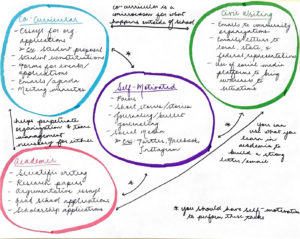 Co-Curricular
• Essays for org
applications
↳ Ex: student proposal
• Student constitutions
• Forms for events/
applications
• Emails/agenda
• Meeting minutes
co-curricular is a
for what
happens outside of school
Civic Writing
• Emails to community
organizations
• Emails/letters to
local, state, &
federal representatives
• Use of social media
platforms to bring
to
situations
*
Self-Motivated
• Poems
• Short stories/stories
• Journaling/bullet
journaling
• Social Media
↳ Ex: Twitter, Facebook,
Instagram
*
helps perpetuate
organization & time
management
necessary for either
*
You can
use what you
learn in
academic to
build a strong
letter/email
Academic
• Scientific writing
• Research papers
• Argumentative essays
• Grad school applications
• Scholarship applications
*
* you should have self-motivation
to perform these tasks